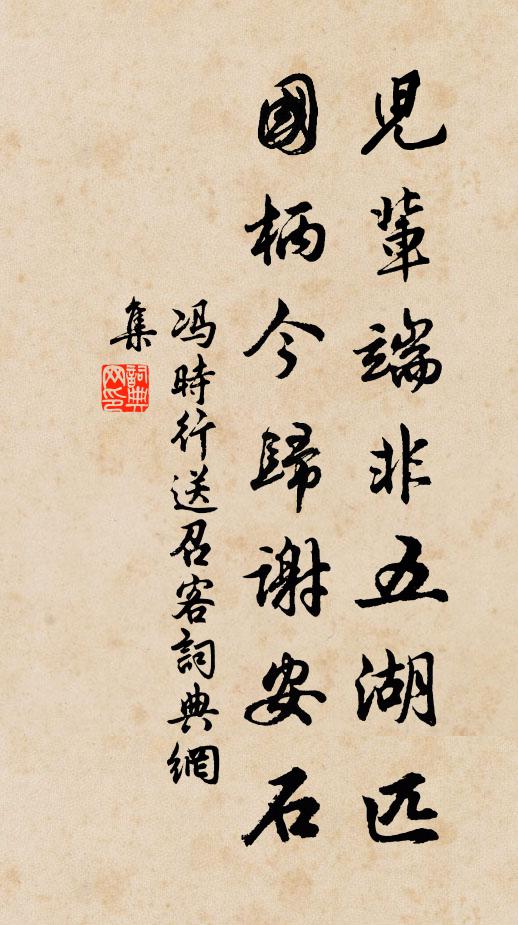 兒輩端非五湖匹
國柄今歸謝安石
冯時行送召客詞典網
集
詞典網印